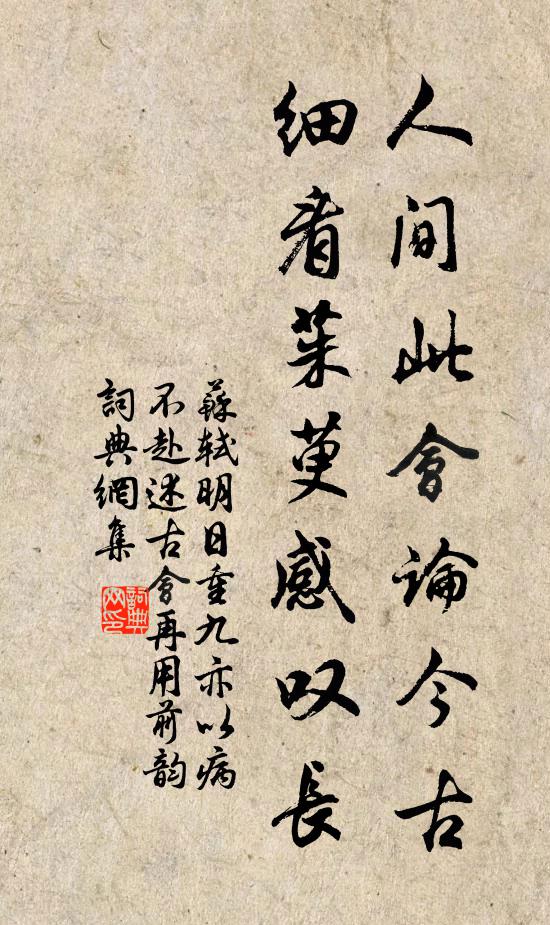 人間此會論今古
細看茱萸感叹長
蘇軾明日重九亦以病
不赴述古會再用前韵
詞典網集
詞典网印